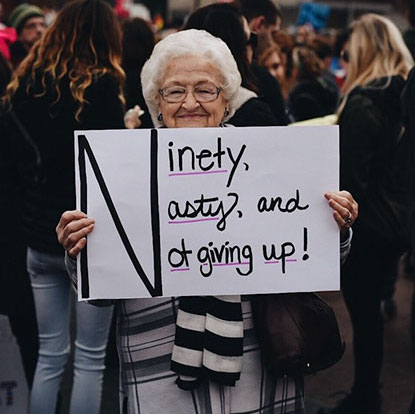 Ninety,
asty, and
ot giving up!